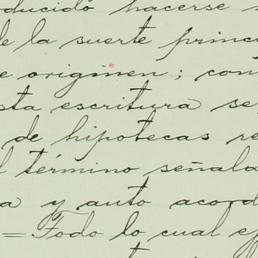 oducido hacerse
de la suerte princ
e originen; con
sta escritura se
de hipotecas re
l término señala
a y auto acord
= Todo lo cual ej